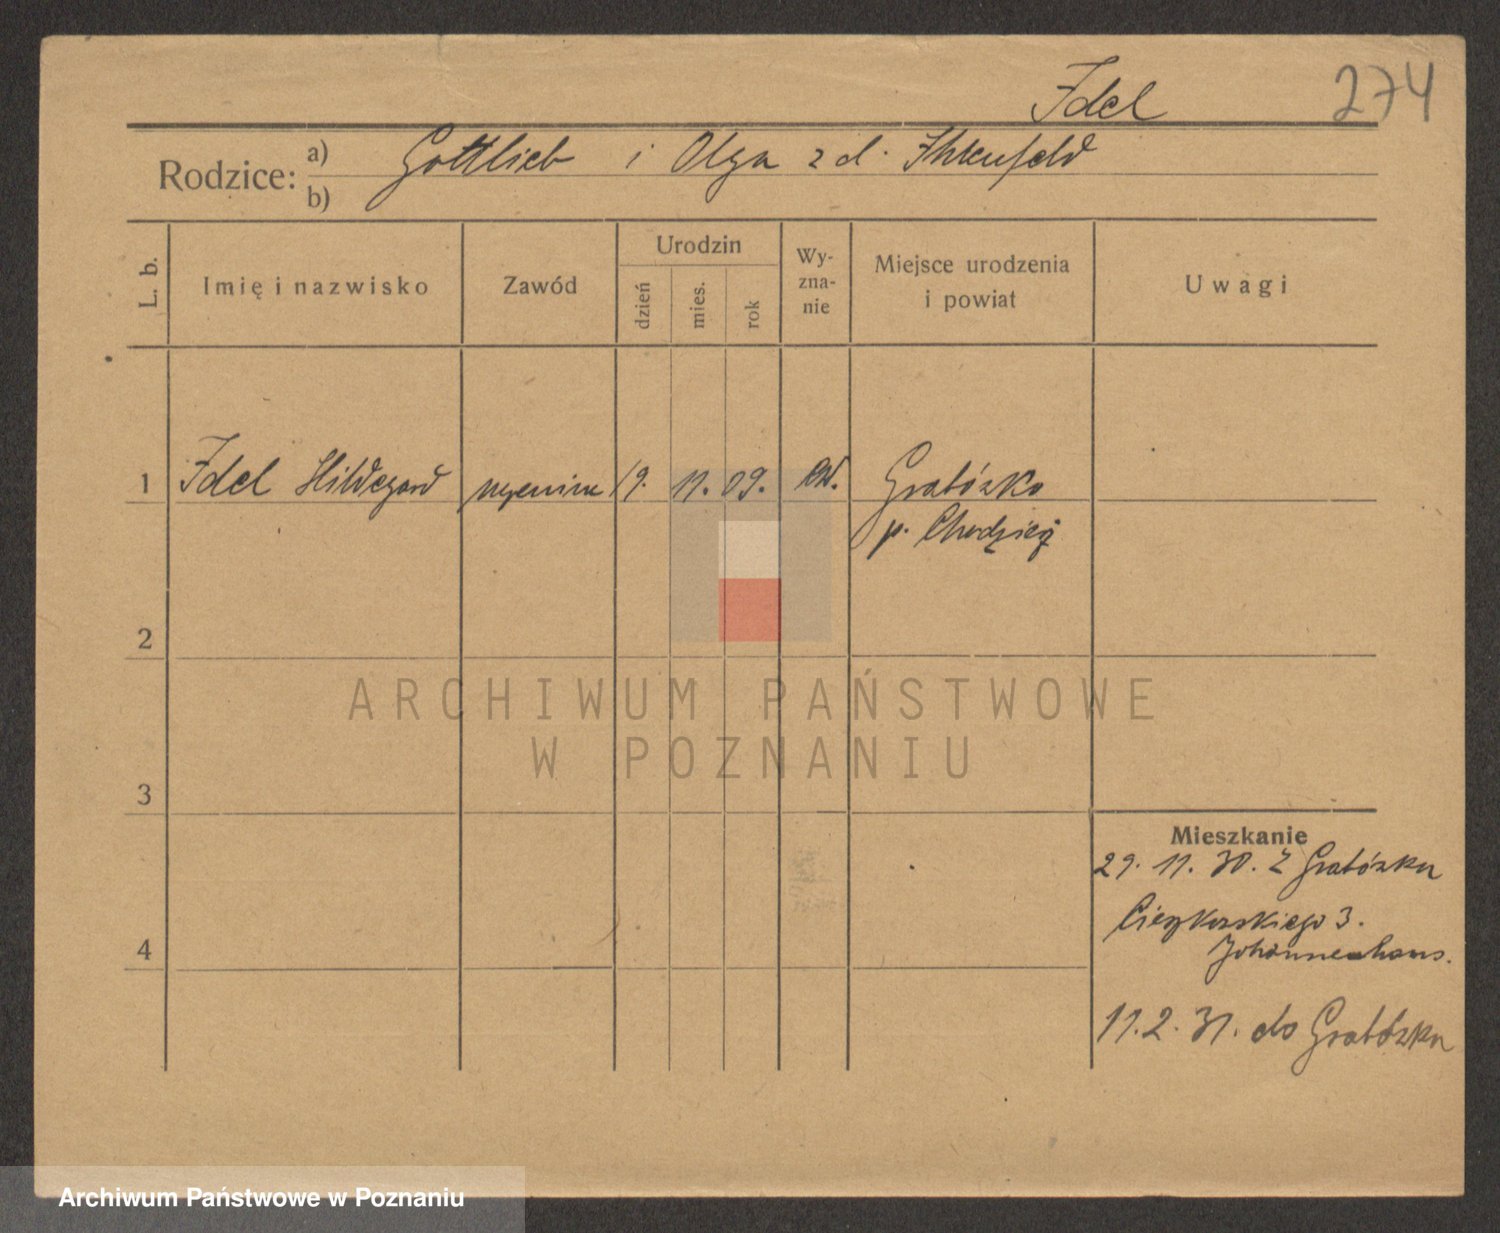 Idel
274
Rodzice: a) Gottlieb i Olga z d. Ihlenfeld
b)
L. b.
Imię i nazwisko
Zawód
Urodzin
dzień
mies.
rok
Wy-
zna-
nie
Miejsce urodzenia
i powiat
Uwagi
1 Idel Hildegard 19. 11. 09. ew. Grabózko
p. Chodzież
2
ARCHIWUM PAŃSTWOWE
W POZNANIU
3
Mieszkanie
29. 11. 30. z Grabózka
Cieszkowskiego 3.
Johannenhaus.
4
11. 2. 31. do Grabózka
Archiwum Państwowe w Poznaniu